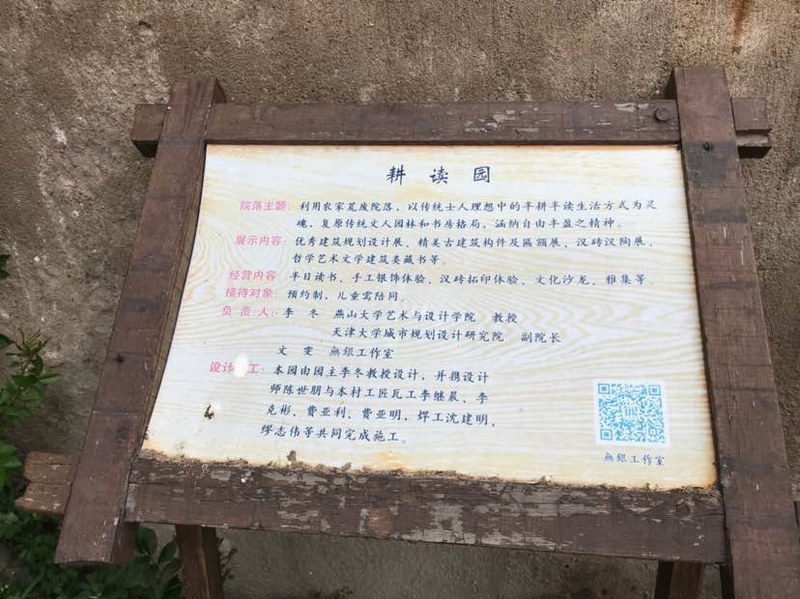 耕读园
院落主题：利用农家荒废院落，以传统士人理想中的半耕半读生活方式为灵
魂，复原传统文人园林和书房格局，涵纳自由丰盈之精神。
展示内容：优秀建筑规划设计展、精美古建筑构件及匾额展、汉砖汉陶展，
哲学艺术文学建筑类藏书等。
经营内容 半日读书、手工银饰体验、汉砖拓印体验、文化沙龙、雅集等
接待对象：预约制，儿童需陪同。
负责人：李冬 燕山大学艺术与设计学院 教授
天津大学城市规划设计研究院 副院长
文雯 無銀工作室
设计 工：本园由园主李冬教授设计，并携设计
师陈世朋与本村工匠瓦工李继晨、李
克彬、费亚利、费亚明，焊工沈建明，
缪志伟等共同完成施工。
無銀工作室